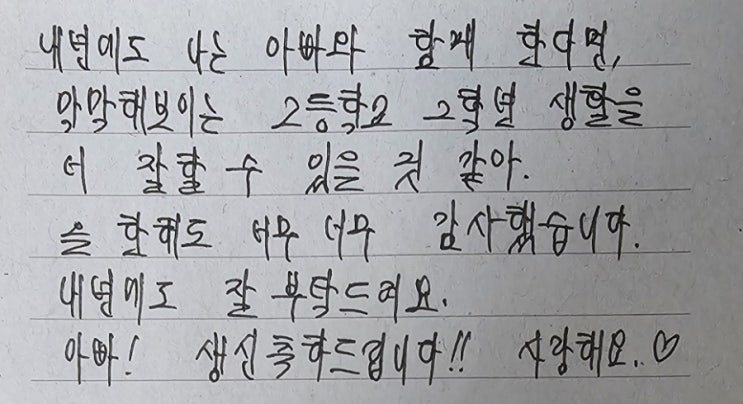 내년에도 나는 아빠와 함께 한다면,
막막해보이는 고등학교 2학년 생활을
더 잘할 수 있을 것 같아.
올 한해도 너무 너무 감사했습니다.
내년에도 잘 부탁드려요.
아빠! 생신축하드립니다!! 사랑해요..♡